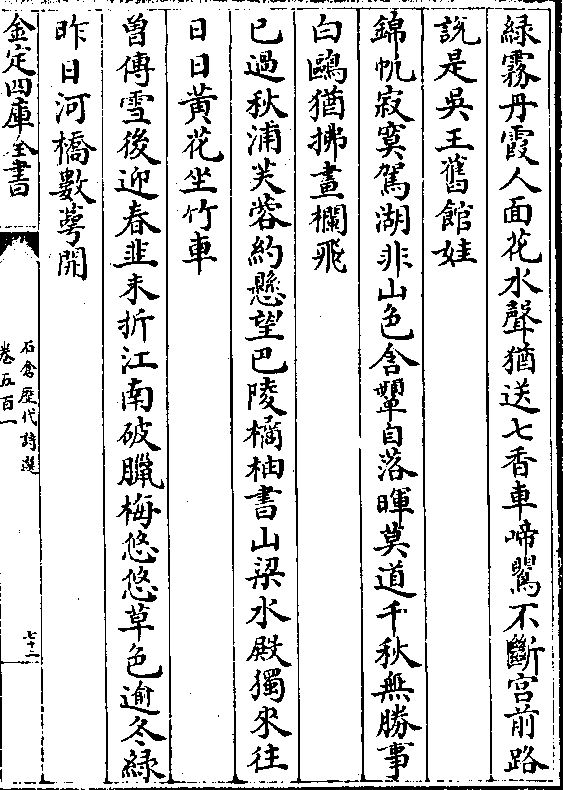 綠霧丹霞人面花水聲猶送七香車啼鸎不斷宫前路
說是吳王舊館娃
錦帆寂寞駕湖非山色含顰自落暉莫道千秋無勝事
白鷗猶拂畫欄飛
已過秋浦芙蓉約懸望巴陵橘柚書山梁水殿獨來往
日日黃花坐竹車
曾傳雪後迎春韭未折江南破臘梅悠悠草色逾冬綠
昨日河橋數萼開
金定四庫全書
石倉歷代詩選
卷五百一
七十二